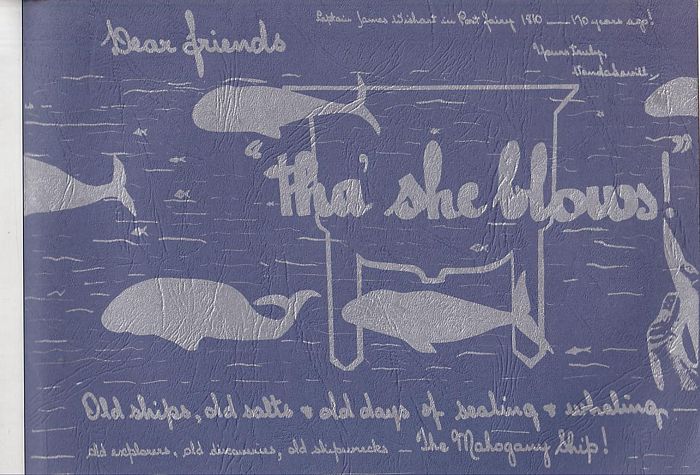 Captain James Wishart in Port Fairy 1810 —— 170 years ago!
Dear friends
Yours truly,
"tha' she blows!"
Old ships, old salts & old days of sealing & whaling
old explorers, old discoveries, old shipwrecks — The Mahogany Ship!